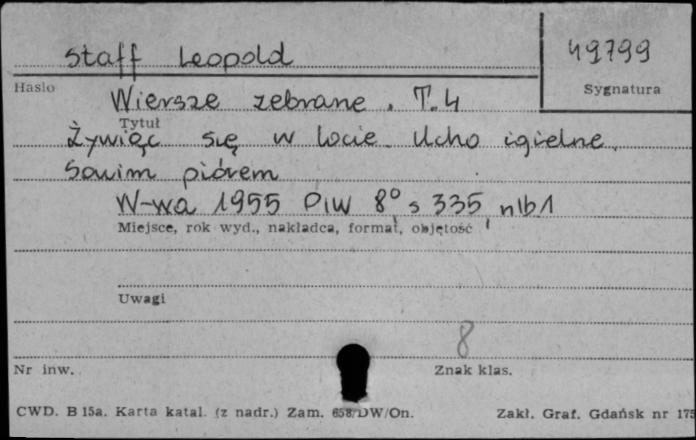 Staff Leopold
49799
Hasło
Sygnatura
Wiersze zebrane. T. 4
Tytuł
Żywiąc się w locie. Ucho igielne.
Sowim piórem
W-wa 1955 PIW 8° s 335, nlb 1
Miejsce, rok wyd., nakładca, format, objętość
Uwagi
8
Nr inw.
Znak klas.
CWD. B 15a. Karta katal. (z nadr.) Zam. 658/DW/On.
Zakł. Graf. Gdańsk nr 175